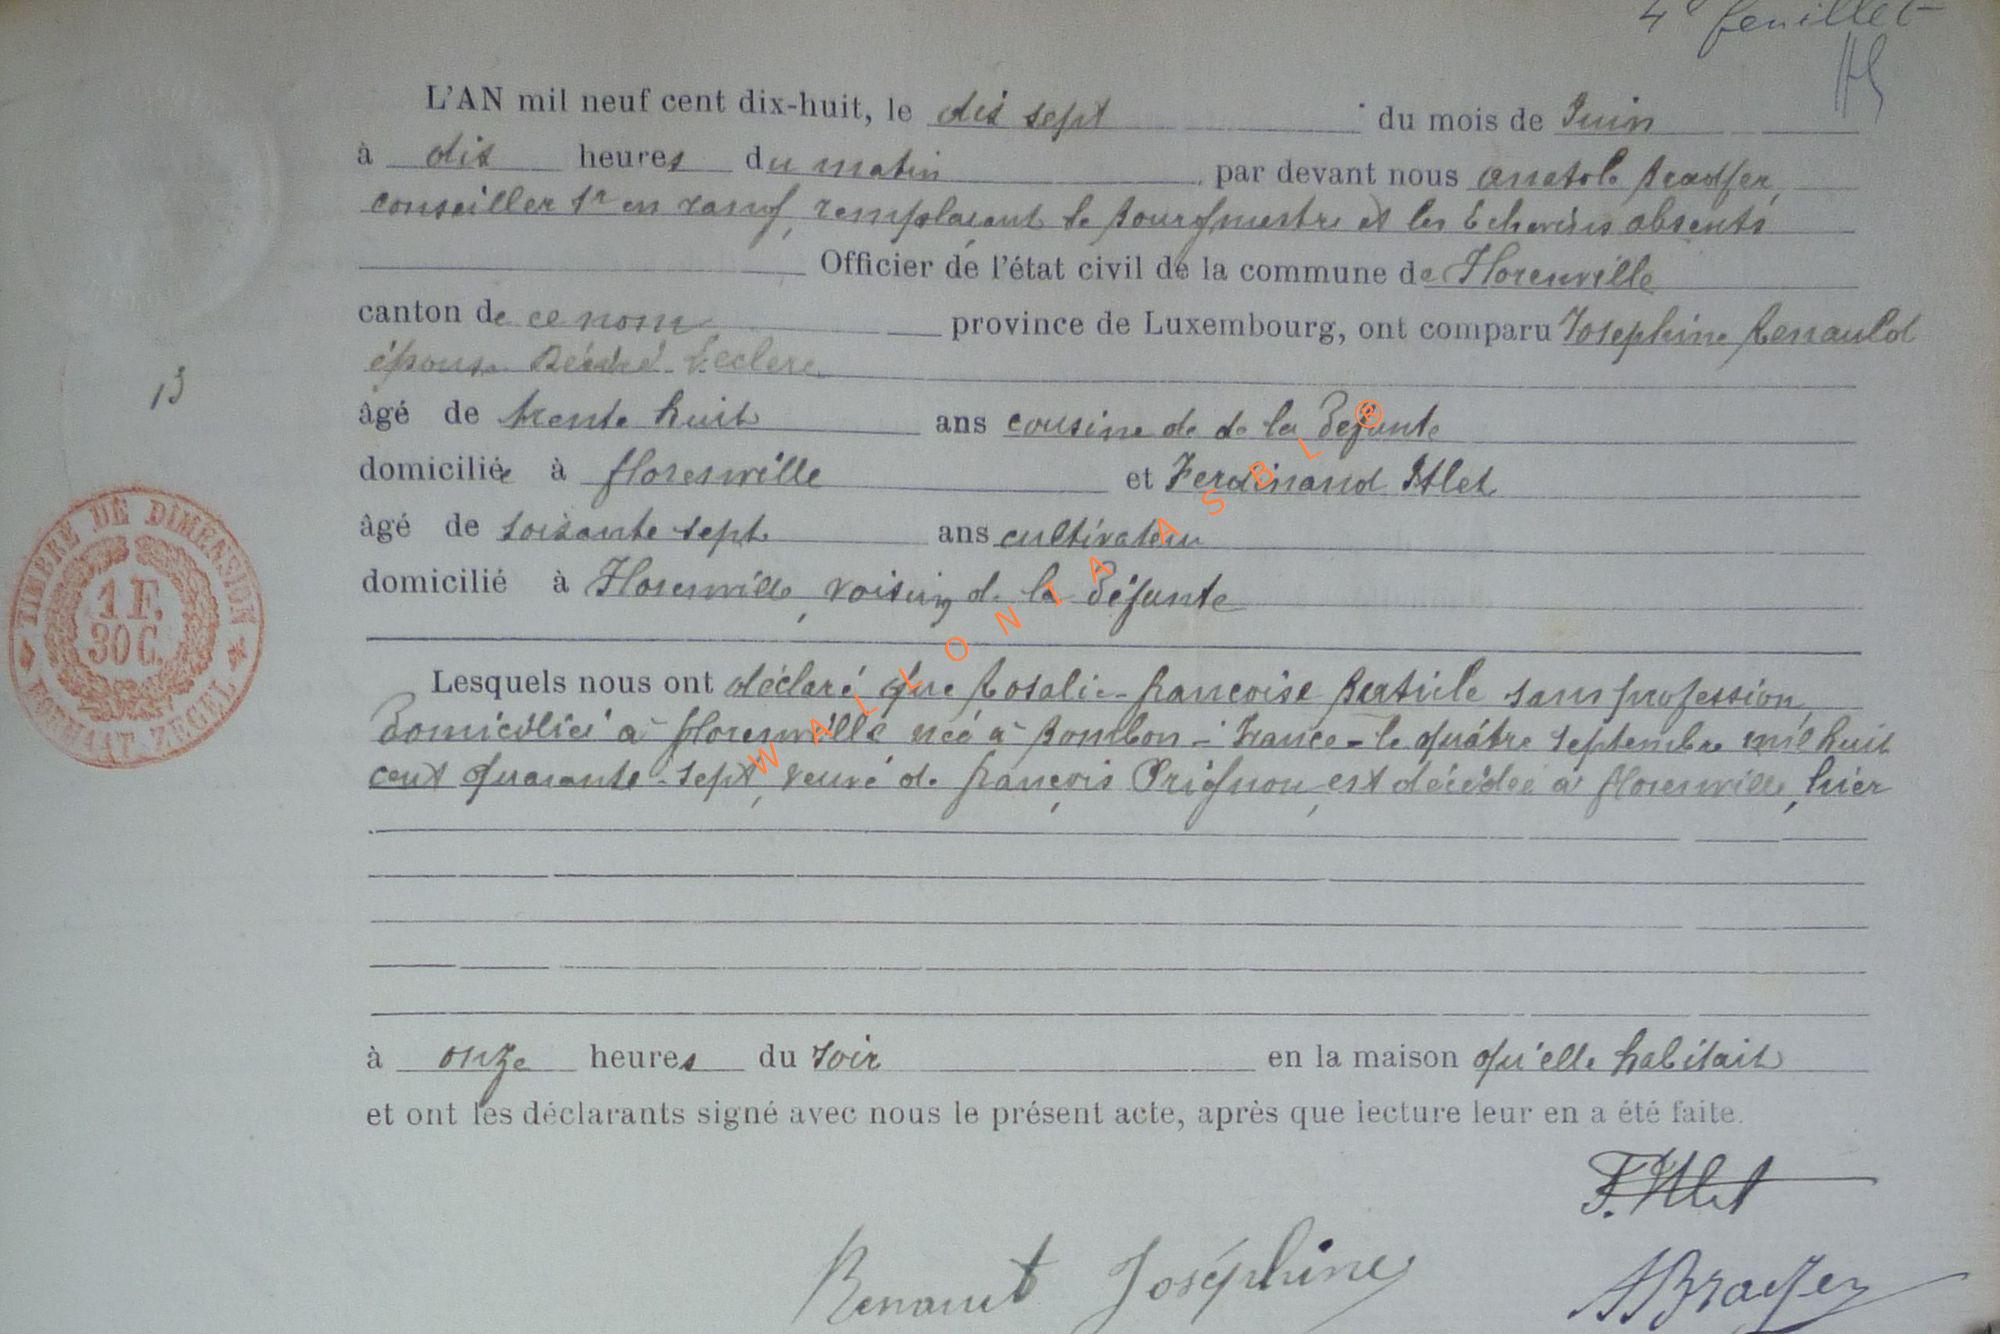 4e feuillet
L'AN mil neuf cent dix-huit, le dix sept du mois de Juin
à dix heures du matin par devant nous Anatole Bradfer,
conseiller 1r en rang, remplaçant le Bourgmestre et les Echevins absents
Officier de l'état civil de la commune de Florenville
canton de ce nom province de Luxembourg, ont comparu Josephine Renauld
épouse Désiré Leclere
âgé de trente huit ans cousine de de la Défunte
domiciliée à Florenville et Ferdinand Itlet
âgé de soixante sept ans cultivateur
domicilié à Florenville, voisin de la Défunte
13
TIMBRE DE DIMENSION
1 F.
30 C.
FORMAAT ZEGEL
WALLONIA ASBL ®
Lesquels nous ont déclaré que Rosalie-Françoise sans profession,
Domiciliée à Florenville née à Bombon - France - le quatre septembre mil huit
cent quarante-sept, veuve de François Prignon, est décédée à Florenville, hier
à onze heures du soir en la maison qu'elle habitait
et ont les déclarants signé avec nous le présent acte, après que lecture leur en a été faite.
F. Itlet
Renault Joséphine
ABradfer